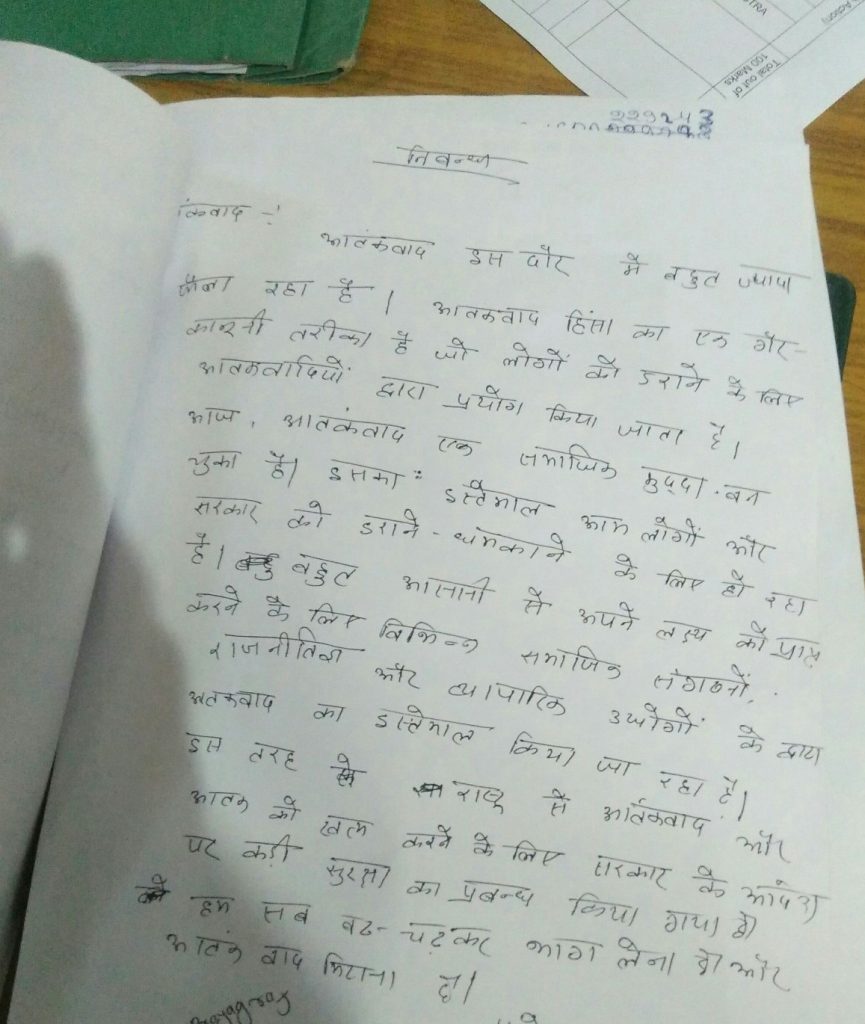 TRA
Action)
Total out of
100 Marks
229243
निबन्ध
ंकवाद -:
आतंकवाद इस दौर में बहुत ज्यादा
फैला रहा है। आतकवाद हिंसा का एक गैर-
कानूनी तरीका है जो लोगों को डराने के लिए
आतकवादियों द्वारा प्रयोग किया जाता है।
आज, आतकंवाद एक समाजिक मुद्दा बन
चुका है। इसका इस्तेमाल आम लोगों और
सरकार को डराने-धमकाने के लिए हो रहा
है। बहुत आसानी से अपने लक्ष्य को प्राप्त
करने के लिए विभिन्न समाजिक संगठनों,
राजनीतिक और व्यापारिक उघोगों के द्वारा
अतकवाद का इस्तेमाल किया जा रहा है।
इस तरह राष्ट्र से आतंकवाद और
आतक को खत्म करने के लिए सरकार के आदेश
पर कड़ी सुरक्षा का प्रबन्ध किया गया है
हम सब बढ-चढ़कर भाग लेना है और
आतंक वाद मिटाना है।
Prayagraj